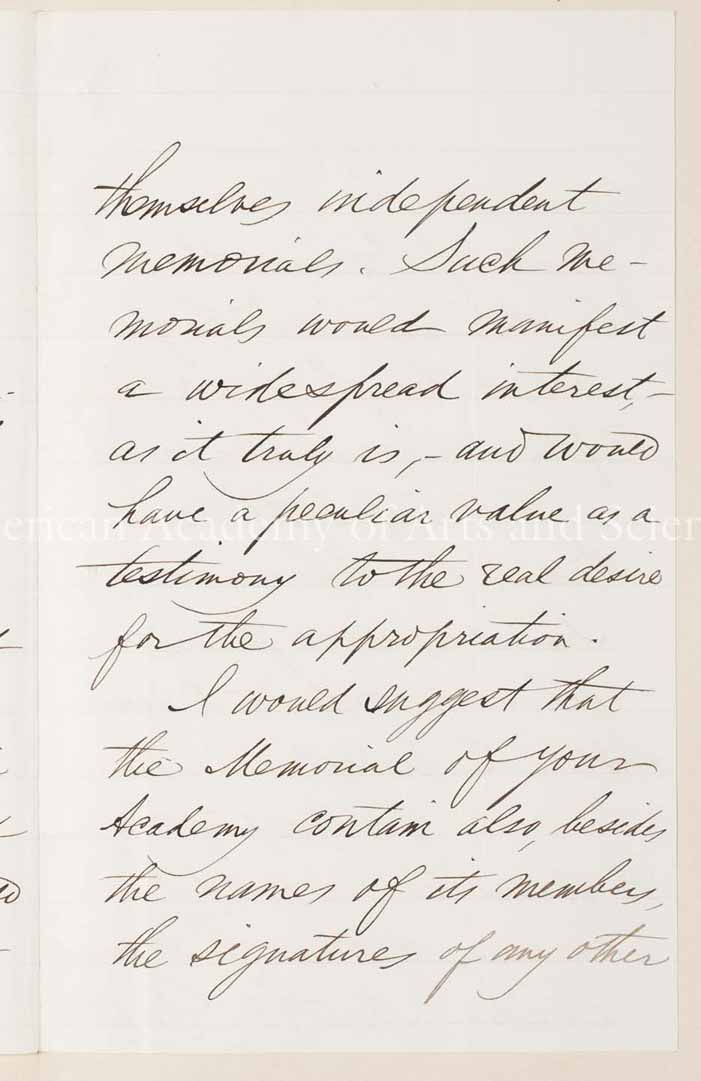 themselves independent
memorials. Such me-
morials would manifest
a widespread interest,-
as it truly is,- and would
have a peculiar value as a
testimony to the real desire
for the appropriation.
I would suggest that
the Memorial of your
Academy contain also, besides
the names of its members,
the signatures of any other